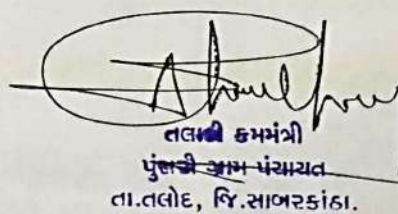 તલાટી કમમંત્રી
પુંસરી ગ્રામ પંચાયત
તા.તલોદ, જિ.સાબરકાંઠા.